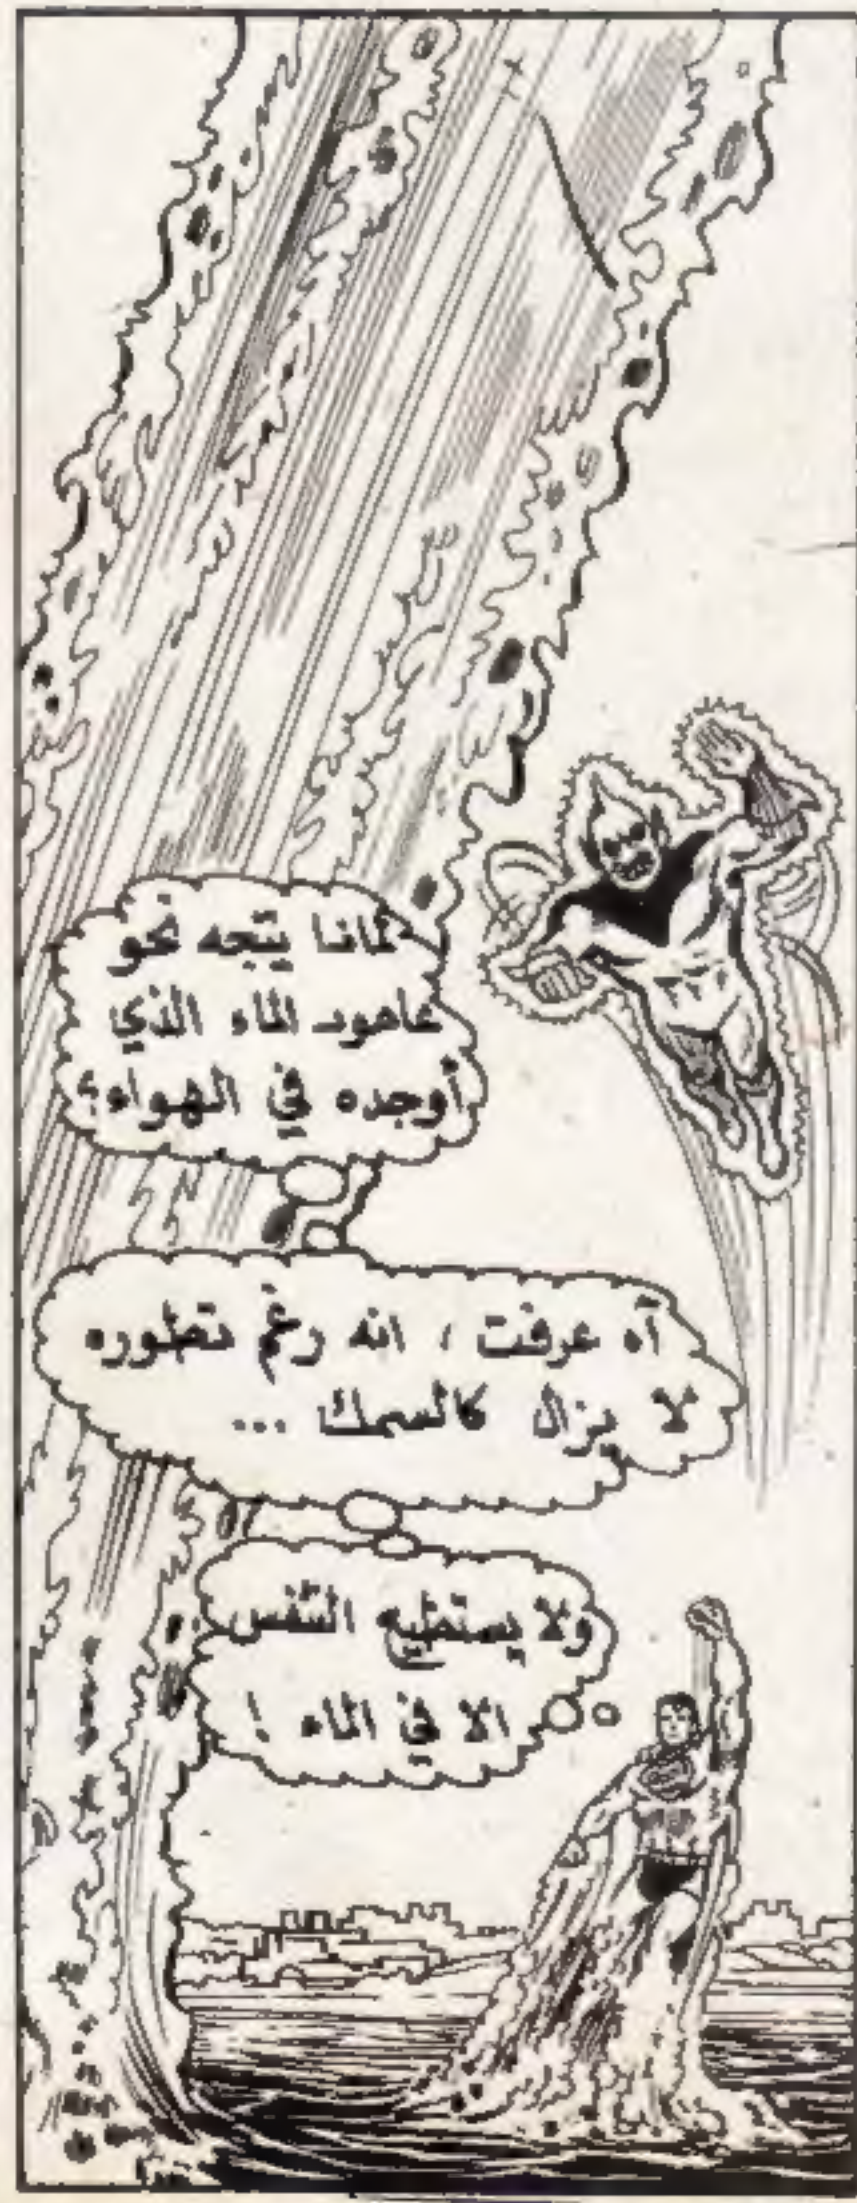 لماذا يتجه نحو
عامود الماء الذي
أوجده في الهواء؟
آه عرفت ، انه رغم تطوره
لا يزال كالسمك ...
ولا يستطيع التنفس
الا في الماء !